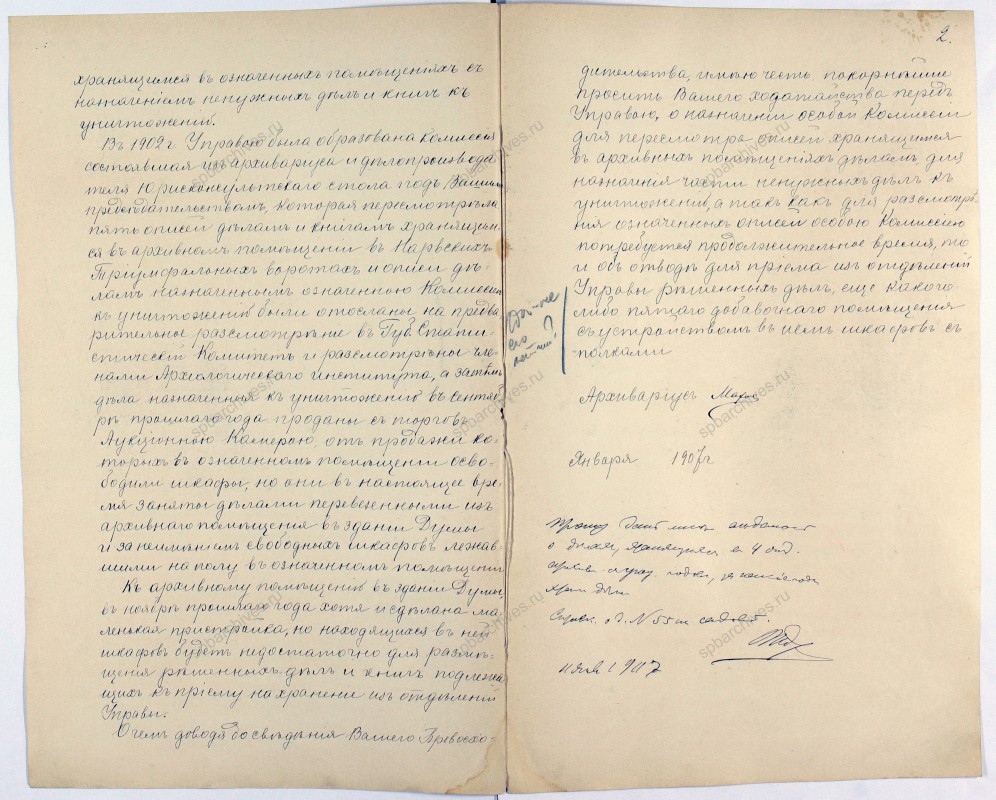 хранящимся въ означенныхъ помѣщеніяхъ съ
назначеніемъ ненужныхъ дѣлъ и книгъ къ
уничтоженію.
Въ 1902 г. Управою была образована Комиссія
состоявшая изъ архиваріуса и дѣлопроизводи
теля Юрисконсультскаго стола подъ Вашимъ
предсѣдательствомъ, которая пересмотрѣла
пять описей дѣламъ и книгамъ хранящим-
ся въ архивномъ помѣщеніи въ Нарвскихъ
Тріумфальныхъ воротахъ и описи дѣ-
ламъ назначеннымъ означенною Комиссіею
къ уничтоженію были отосланы на предва
рительное разсмотрѣніе въ Губ. Стати-
стическій Комитетъ и разсмотрѣны чле-
нами Археологическаго института, а затѣмъ
дѣла назначенныя къ уничтоженію въ Сентяб
рѣ прошлаго года проданы съ торговъ
Аукціонною Камерою, отъ продажи ко-
торыхъ въ означенномъ помѣщеніи осво-
бодили шкафы, но они въ настоящее вре-
мя заняты дѣлами перевезенными изъ
архивнаго помѣщенія въ зданіи Думы
и за неимѣніемъ свободныхъ шкафовъ лежав-
шими на полу въ означенномъ помѣщеніи
Къ архивному помѣщенію въ зданіи Думы,
въ ноябрѣ прошлаго года хотя и сдѣлана ма-
ленькая пристройка, но находящихся въ ней
шкафовъ будетъ недостаточно для размѣ-
щенія рѣшенныхъ дѣлъ и книгъ подлежа
щихъ къ пріему на храненіе изъ отдѣленій
Управы.
О чемъ доводя до свѣдѣнія Вашего Превосхо-
2.
дительства, имѣю честь покорнѣйше
просить Вашего ходатайства передъ
Управою, о назначеніи особой Комиссіи
для пересмотра описей хранящимся
въ архивныхъ помѣщеніяхъ дѣламъ, для
назначенія части ненужныхъ дѣлъ къ
уничтоженію, а такъ какъ для разсмотрѣ-
нія означенныхъ описей особою Комиссіею
потребуется продолжительное время, то
и объ отводѣ для пріема изъ отдѣленій
Управы рѣшенныхъ дѣлъ, еще какого-
либо пятаго добавочнаго помѣщенія
съ устройствомъ въ немъ шкафовъ съ
полками
его
Архиваріусъ
Января 1907 г
Прошу дать мнѣ
о дѣлахъ, хранящихся въ 4 отд.
1907
spbarchives.ru